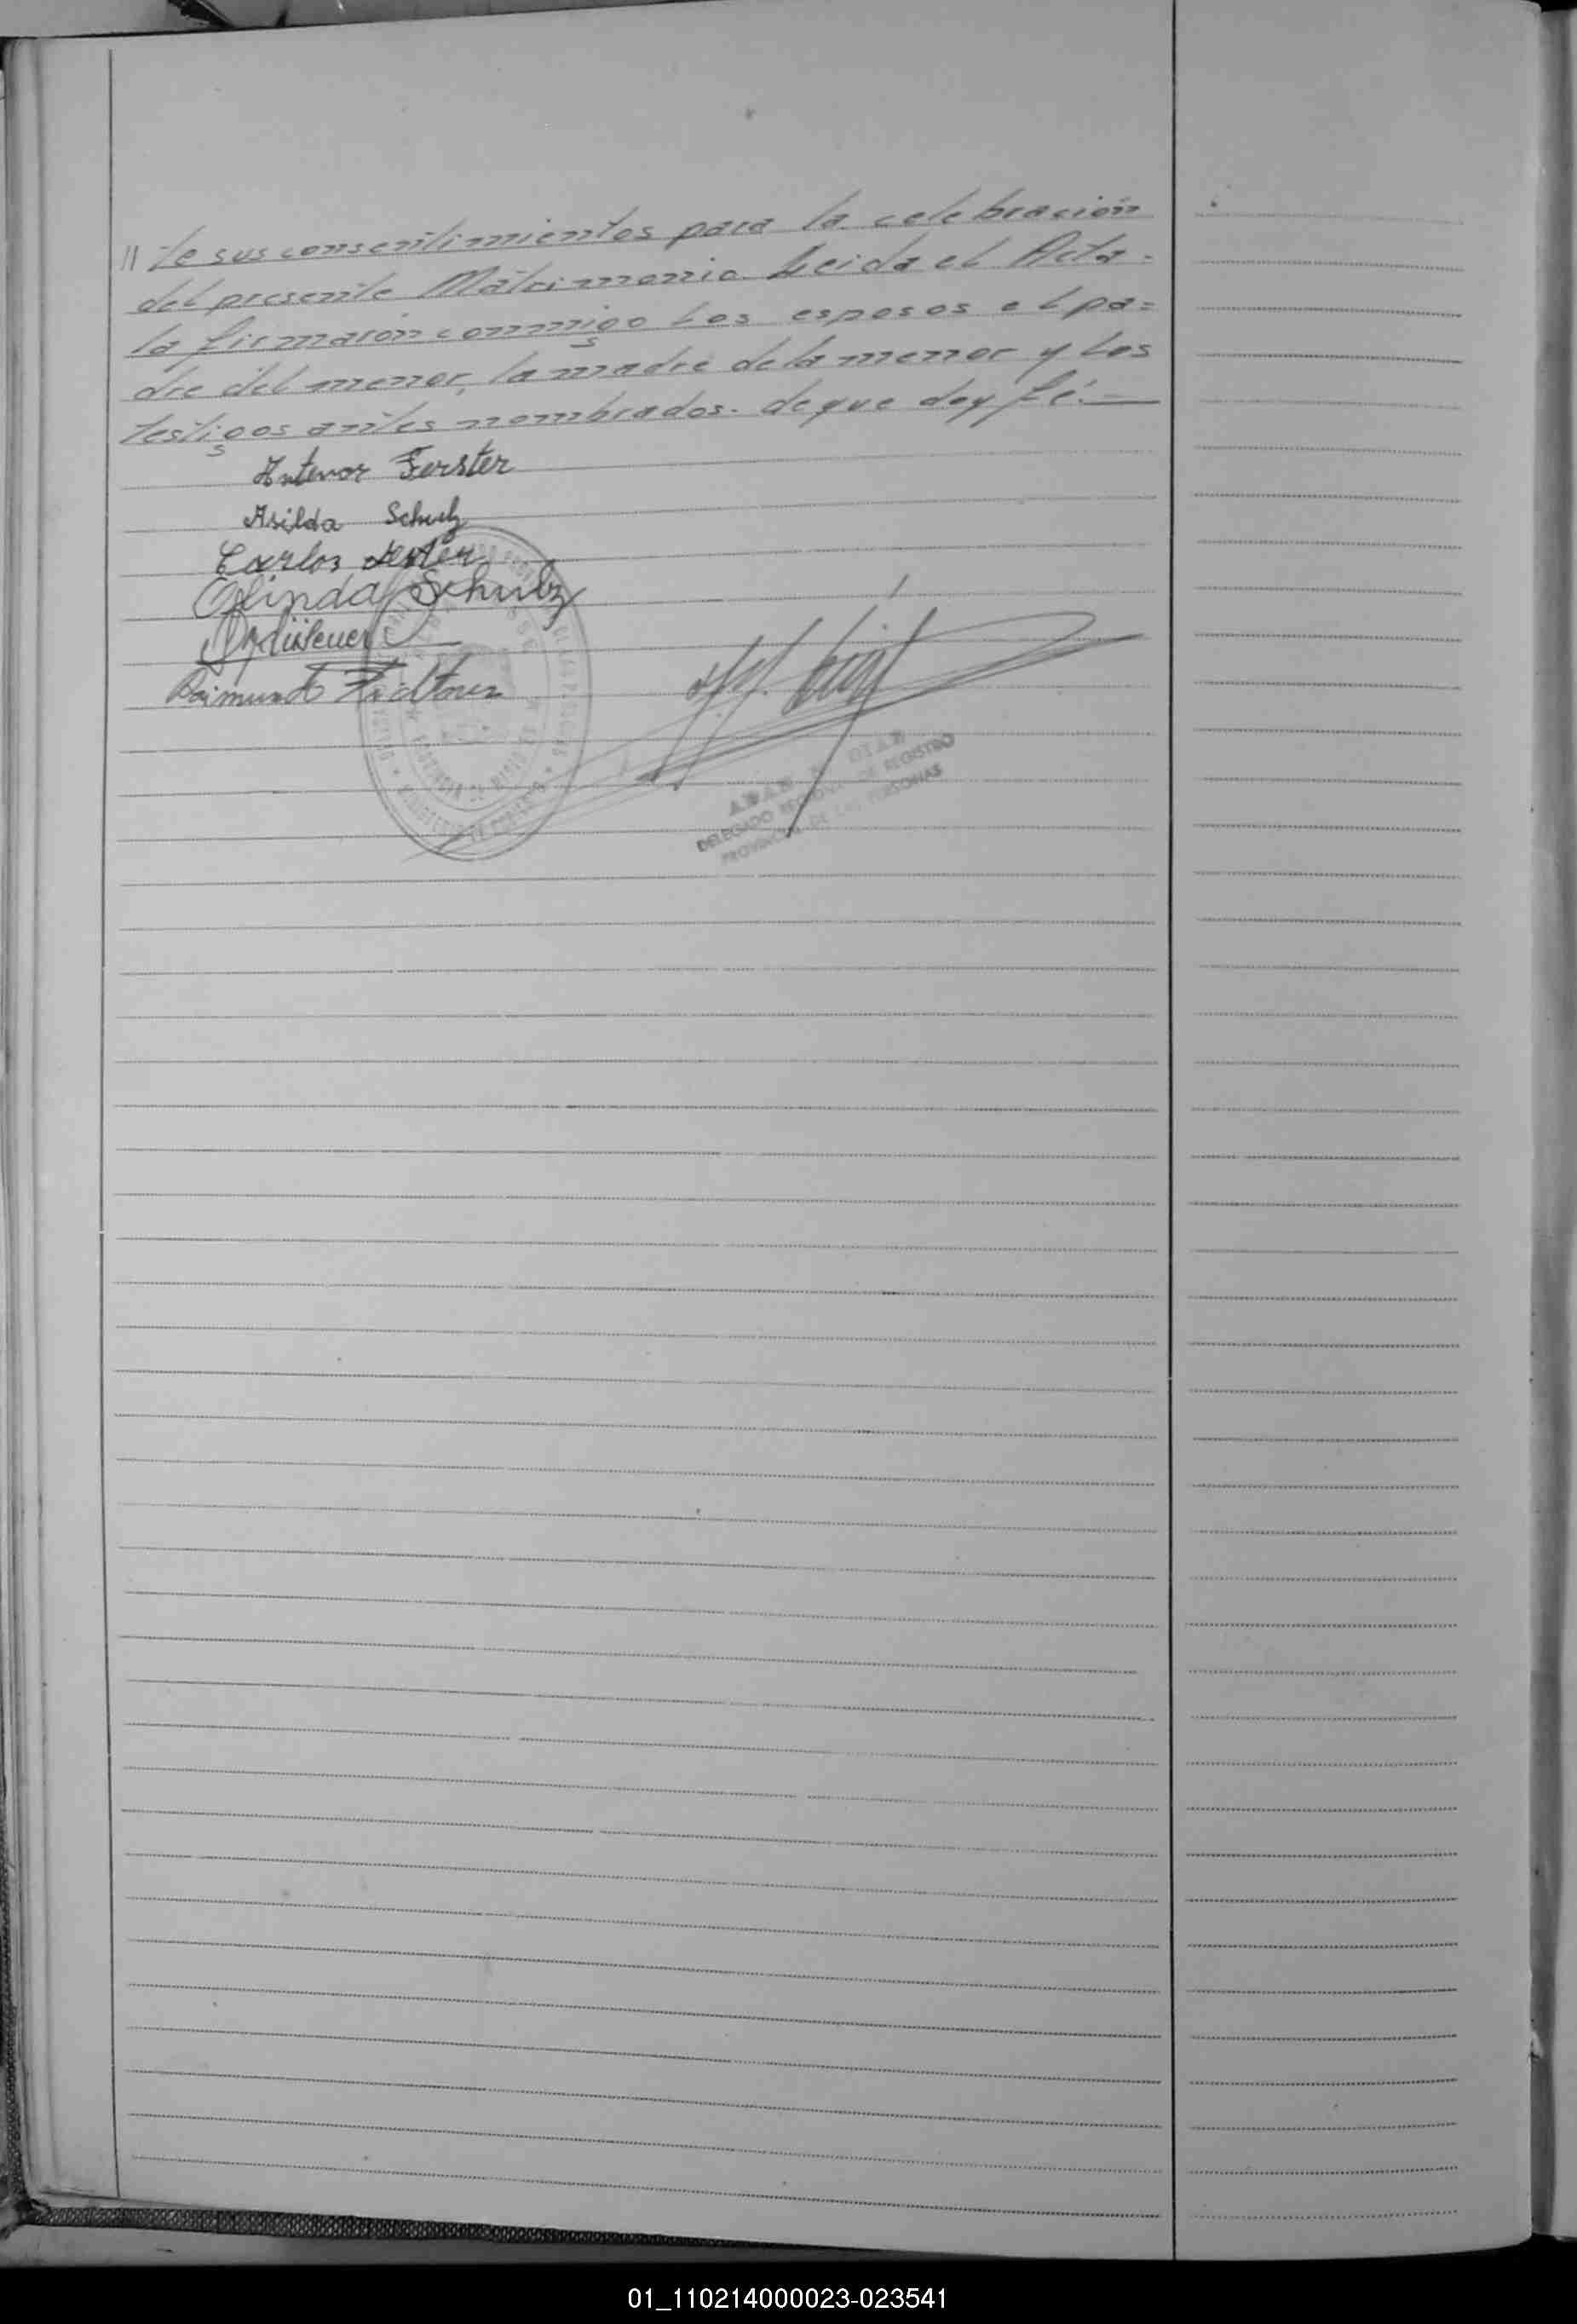 // te sus consentimientos para la celebración
del presente Matrimonio. Leida el Acta.
la firmarón conmigo los esposos el pa=
dre del menor, la madre de la menor y los
testigos antes nombrados. de que doy fé.—
Antenor Ferster
Asilda Schulz
Carlos Ferster
Olinda Schulz
Raimundo
DELEGADO REGIONAL DE REGISTRO
PROVINCIAL DE LAS PERSONAS
01_110214000023-023541